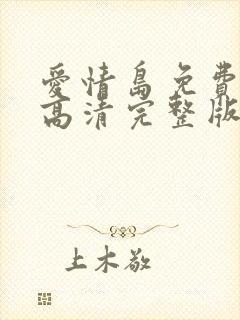 愛情島免費
高清完整版
上木敬